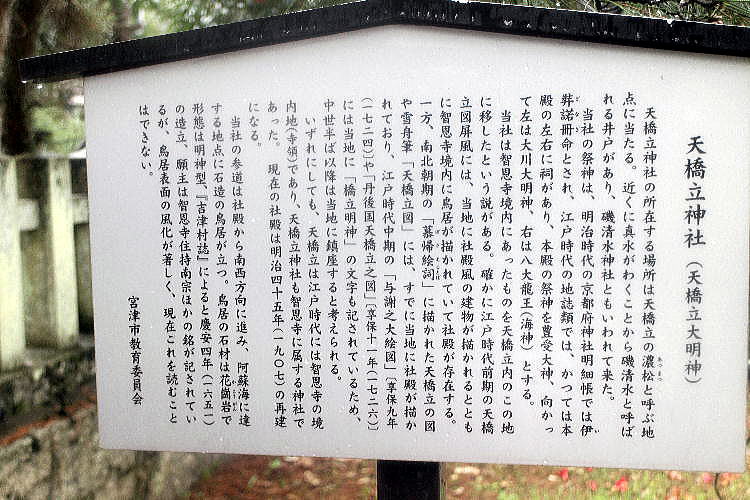 天橋立神社（天橋立大明神）
天橋立神社の所在する場所は天橋立の濃松と呼ぶ地
あつまつ
点に当たる。近くに真水がわくことから磯清水と呼ば
れる井戸があり、磯清水神社ともいわれて来た。
当社の祭神は、明治時代の京都府神社明細帳では伊
弉諾冊命とされ、江戸時代の地誌類では、かつては本
殿の左右に祠があり、本殿の祭神を豊受大神、向かっ
て左は大川大明神、右は八大龍王（海神）とする。
当社は智恩寺境内にあったものを天橋立内のこの地
に移したという説がある。確かに江戸時代前期の天橋
立図屏風には、当地に社殿風の建物が描かれるととも
に智恩寺境内に鳥居が描かれていて社殿が存在する。
一方、南北朝期の「慕帰絵詞」に描かれた天橋立の図
や雪舟筆「天橋立図」には、すでに当地に社殿が描か
れており、江戸時代中期の「与謝之大絵図」〔享保九年
（一七二四）〕や「丹後国天橋立之図」〔享保十一年（一七二六）〕
には当地に「橋立明神」の文字も記されているため、
中世半ば以降は当地に鎮座すると考えられる。
いずれにしても、天橋立は江戸時代には智恩寺の境
内地（寺領）であり、天橋立神社も智恩寺に属する神社で
あった。 現在の社殿は明治四十五年（一九〇七）の再建
になる。
当社の参道は社殿から南西方向に進み、阿蘇海に達
する地点に石造の鳥居が立つ。鳥居の石材は花崗岩で
かこうがん
形態は明神型、『吉津村誌』によると慶安四年（一六五一）
の造立、願主は智恩寺住持南宗ほかの銘が記されてい
るが、鳥居表面の風化が著しく、現在これを読むこと
はできない。
宮津市教育委員会